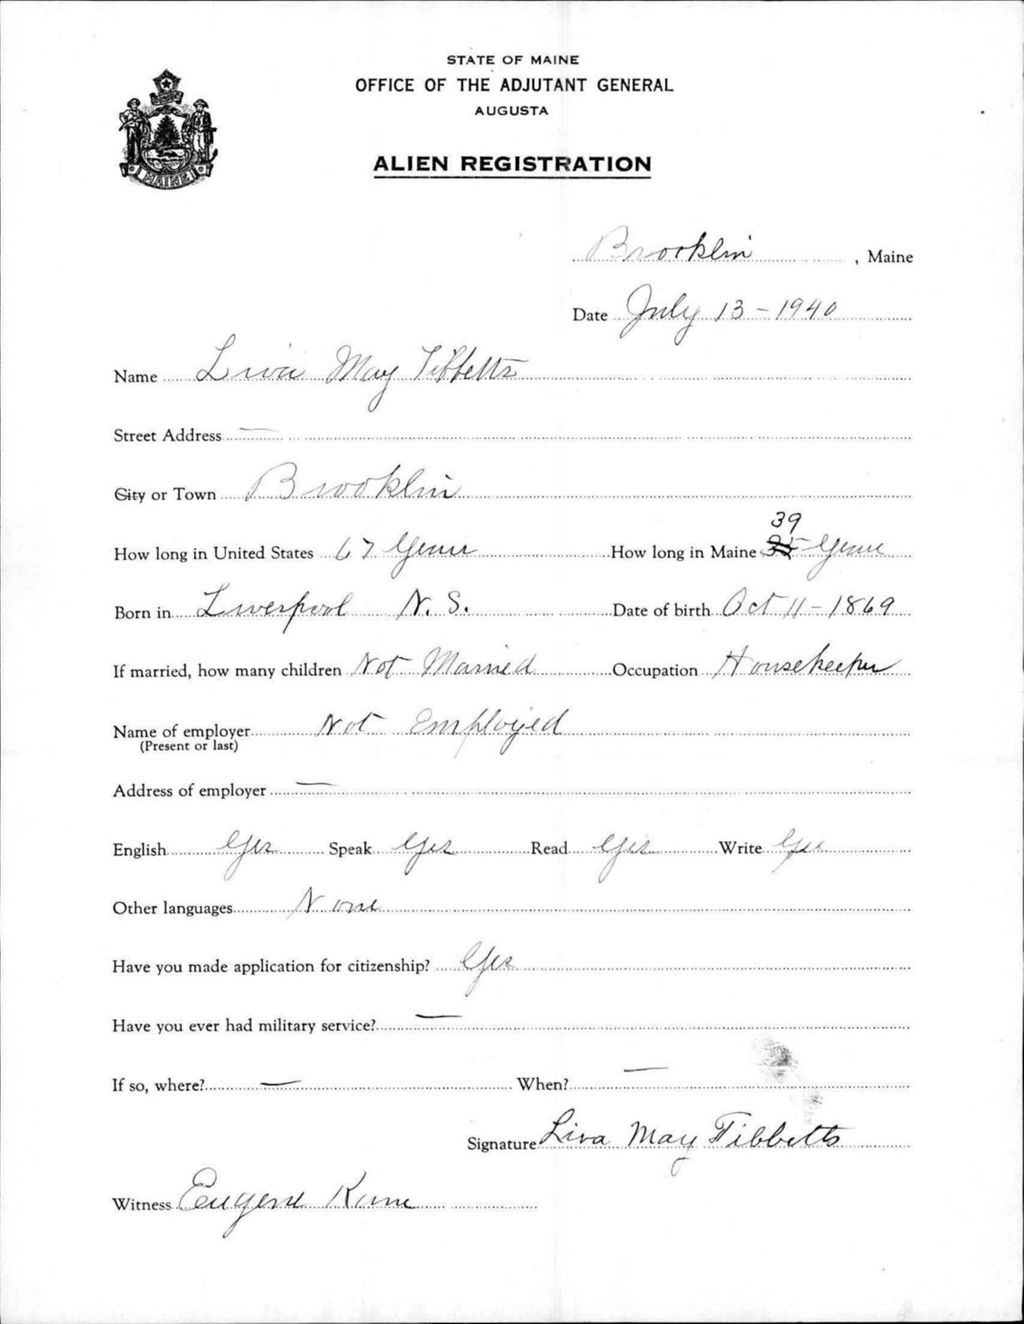 STATE OF MAINE
OFFICE OF THE ADJUTANT GENERAL
AUGUSTA
ALIEN REGISTRATION
MAINE
Brooklin, Maine
Date July 13 - 1940
Name Liva May Tibbetts
Street Address —
City or Town Brooklin
39
How long in United States 67 Years How long in Maine 35 Years
Born in Liverpool N. S. Date of birth Oct 11 - 1869
If married, how many children Not Married Occupation Housekeeper
Name of employer Not Employed
(Present or last)
Address of employer —
English Yes Speak Yes Read Yes Write Yes
Other languages None
Have you made application for citizenship? Yes
Have you ever had military service? —
If so, where? — When? —
Signature Liva May Tibbetts
Witness Eugene Kane